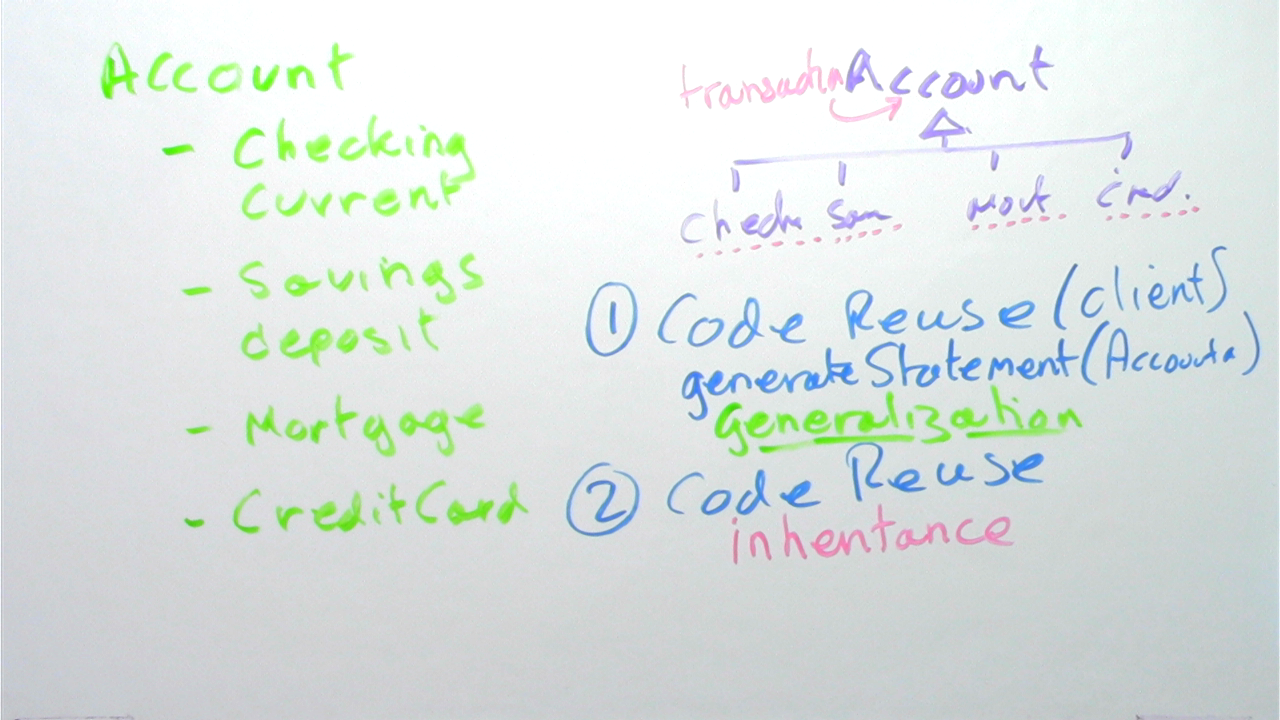 Account
- Checking
current
- Savings
deposit
- Mortgage
- CreditCard
Account
Mort
① Code Reuse (client)
generateStatement(Account a)
Generalization
② Code Reuse
inheritance